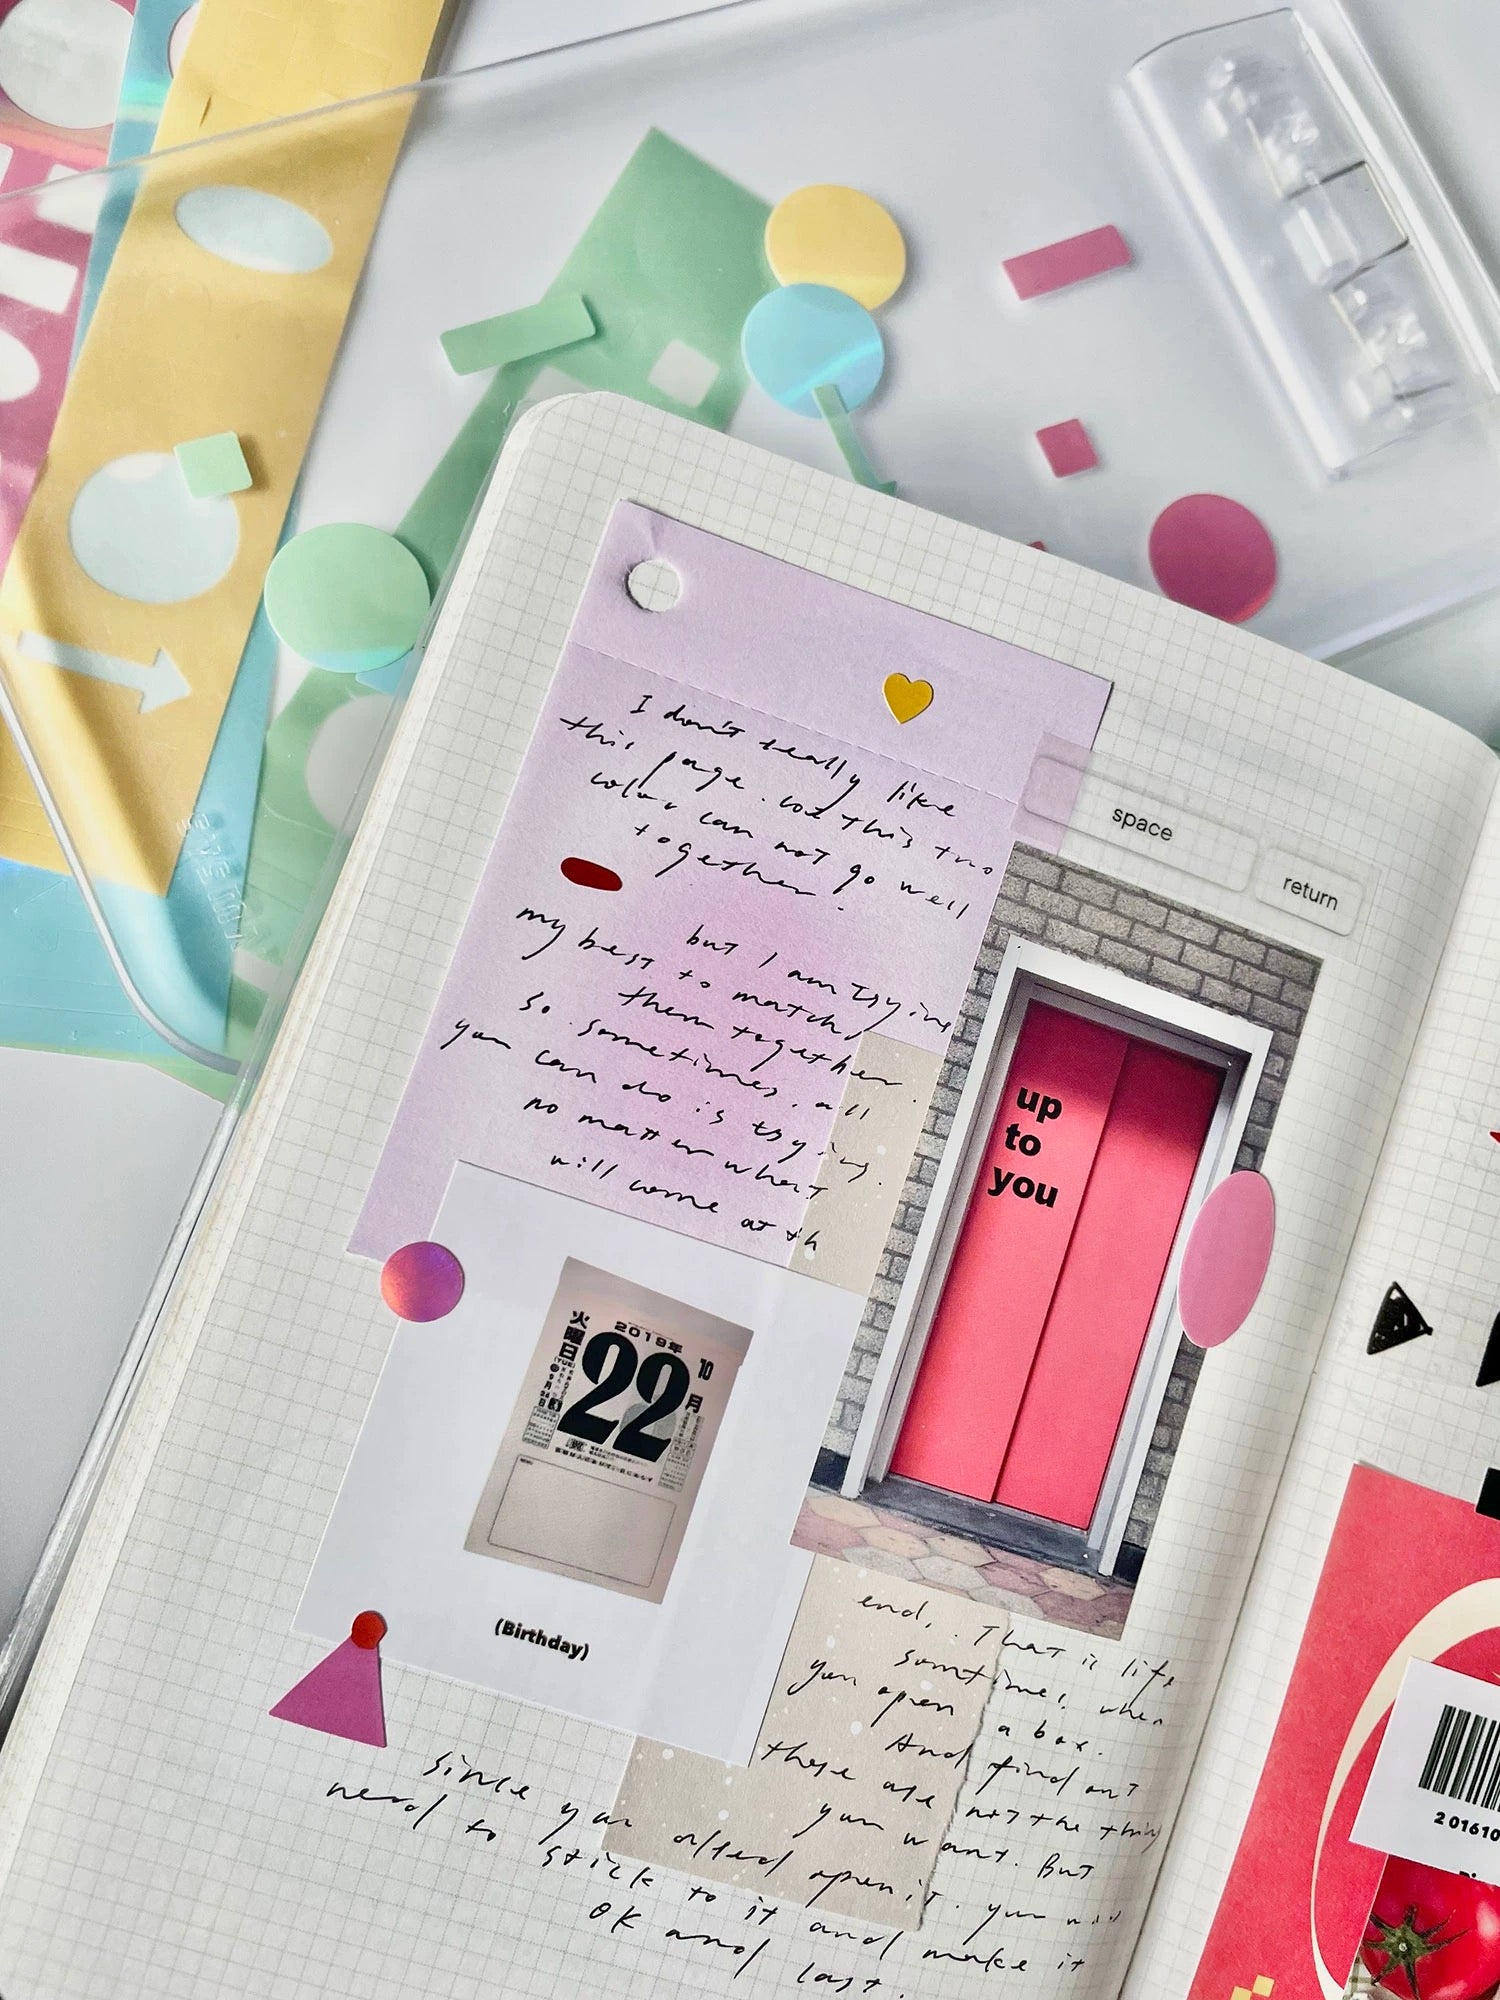 I don't really like
this page. coz this two
color can not go well
together.
but I am trying
my best to match
them together.
so sometimes, all
you can do is trying.
no matter what
will come at th
space
return
up
to
you
2019年
火曜日
(TUE)
22
10月
(Birthday)
end. That is life
sometimes, when
you open a box.
And find out
those are not the thing
you want. But
since you open it. you will
need to stick to it and make it
OK and last.
201610